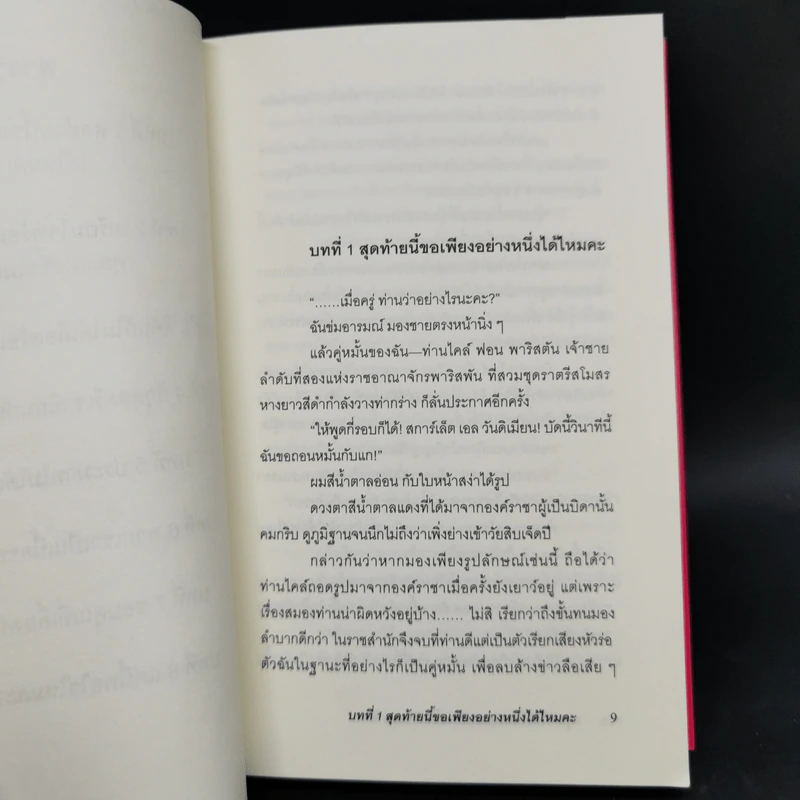 บทที่ 1 สุดท้ายนี้ขอเพียงอย่างหนึ่งได้ไหมคะ
“......เมื่อครู่ ท่านว่าอย่างไรนะคะ?”
ฉันข่มอารมณ์ มองชายตรงหน้านิ่ง ๆ
แล้วคู่หมั้นของฉัน—ท่านไคล์ ฟอน พาริสตัน เจ้าชาย
ลำดับที่สองแห่งราชอาณาจักรพาริสพัน ที่สวมชุดราตรีสโมสร
หางยาวสีดำกำลังวางท่ากร่าง ก็ลั่นประกาศอีกครั้ง
“ให้พูดกี่รอบก็ได้! สการ์เล็ต เอล วันดิเมียน! บัดนี้วินาทีนี้
ฉันขอถอนหมั้นกับแก!”
ผมสีน้ำตาลอ่อน กับใบหน้าสง่าได้รูป
ดวงตาสีน้ำตาลแดงที่ได้มาจากองค์ราชาผู้เป็นบิดานั้น
คมกริบ ดูภูมิฐานจนนึกไม่ถึงว่าเพิ่งย่างเข้าวัยสิบเจ็ดปี
กล่าวกันว่าหากมองเพียงรูปลักษณ์เช่นนี้ ถือได้ว่า
ท่านไคล์ถอดรูปมาจากองค์ราชาเมื่อครั้งยังเยาว์อยู่ แต่เพราะ
เรื่องสมองท่านน่าผิดหวังอยู่บ้าง...... ไม่สิ เรียกว่าถึงขั้นทนมอง
ลำบากดีกว่า ในราชสำนักจึงจบที่ท่านดีแต่เป็นตัวเรียกเสียงหัวร่อ
ตัวฉันในฐานะที่อย่างไรก็เป็นคู่หมั้น เพื่อลบล้างข่าวลือเสีย ๆ
บทที่ 1 สุดท้ายนี้ขอเพียงอย่างหนึ่งได้ไหมคะ 9